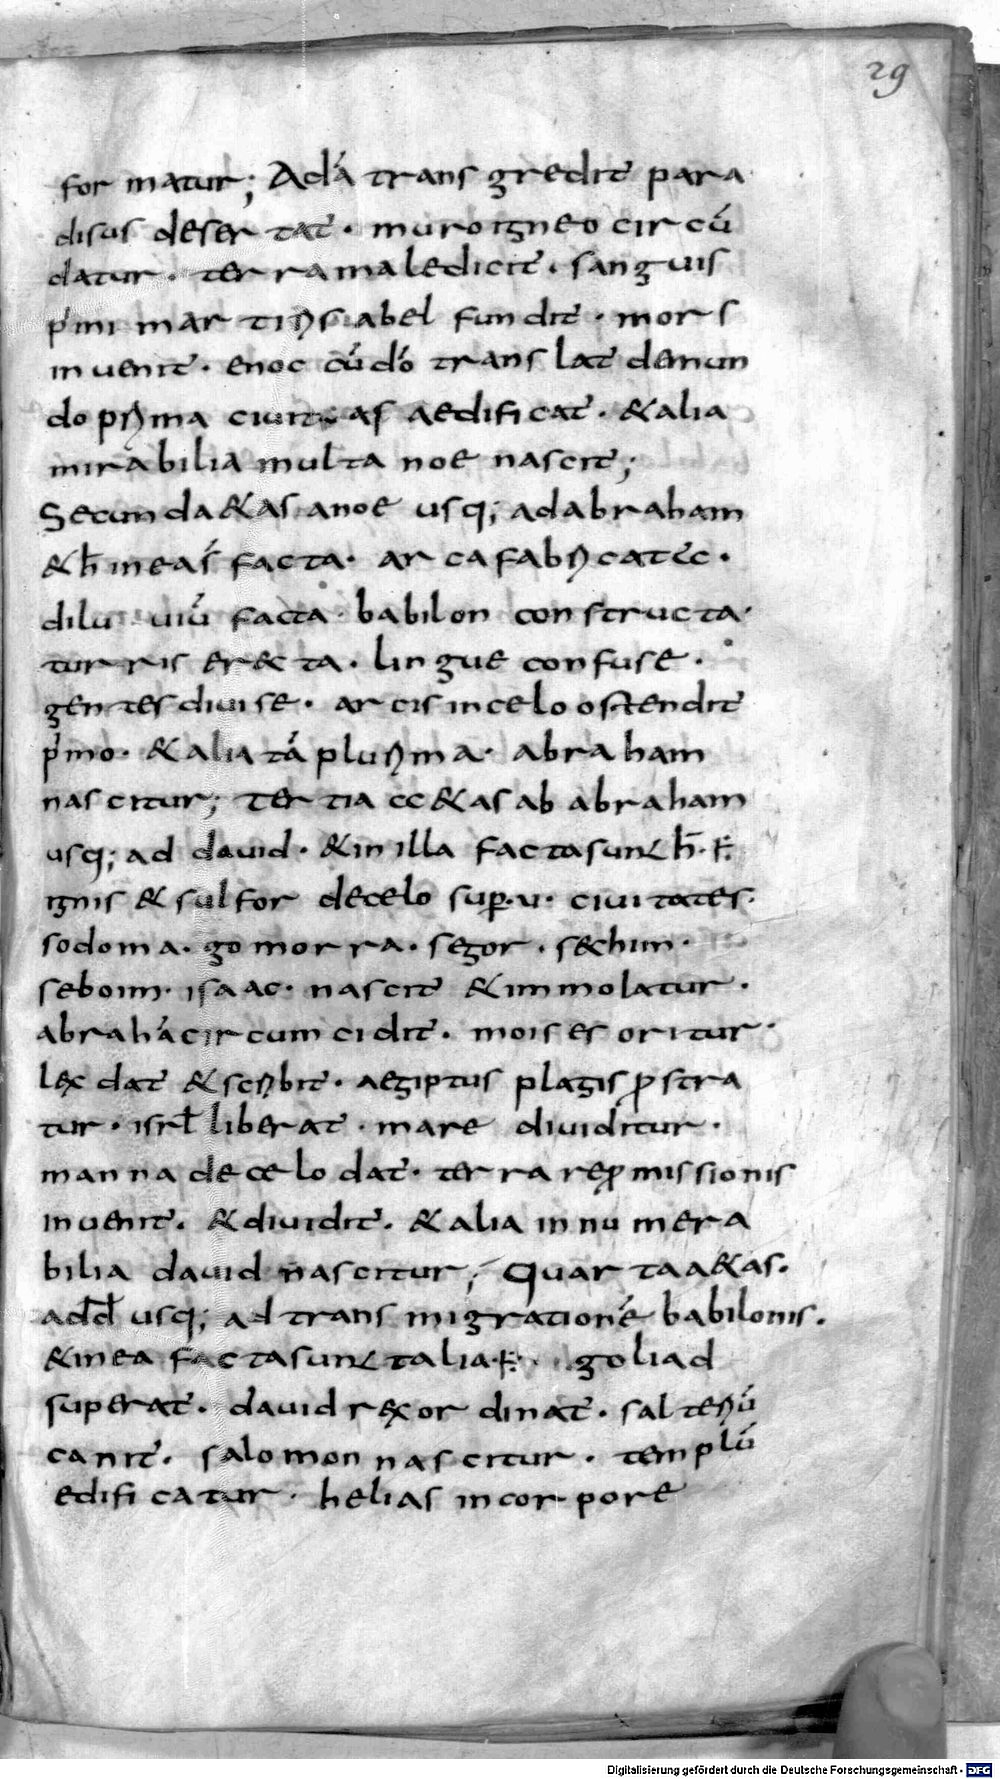 29
formatur; Adā transgredit̄ para
disus desertat̄. muro igneo circū
datur. terra maledicit̄. sanguis
p'mi martiris abel fundit̄. mors
inuenit̄. enoc cū dō translat̄ de mun
do prima ciuitas aedificat̄. & alia
mirabilia multa noe nascit̄;
Secunda &as a noe usq; ad abraham
& h̄ in ea s̄ facta. arca fabricat
diluuiū facta. babilon constructa.
turris er&cta. lingue confuse.
gentes diuise. arcis in celo ostendit̄
p'mo. & alia tā plurima. abraham
nascitur; Tertia &as ab abraham
usq; ad dauid. & in illa facta sunt h̄.
ignis & sulfor de celo sup̱.u. ciuitates.
sodoma. gomorra. segor. s&chim.
seboim. isaac. nascit̄ & immolatur.
abrahā circumcidit̄. moises oritur.
lex dat̄ & scribit̄. aegiptus plagis ꝓstra
tur. isrł liberat̄. mare diuiditur.
manna de celo dat̄. terra reꝓmissionis
inuenit̄. & diuidit̄. & alia innumera
bilia dauid nascitur; Quarta a&as.
a dd̄ usq; ad transmigrationē babilonis.
& in ea facta sunt talia. goliad
superat̄. dauid rex ordinat̄. salteriū
canit̄. salomon nascitur. templū
edificatur. helias in corpore
Digitalisierung gefördert durch die Deutsche Forschungsgemeinschaft - DFG